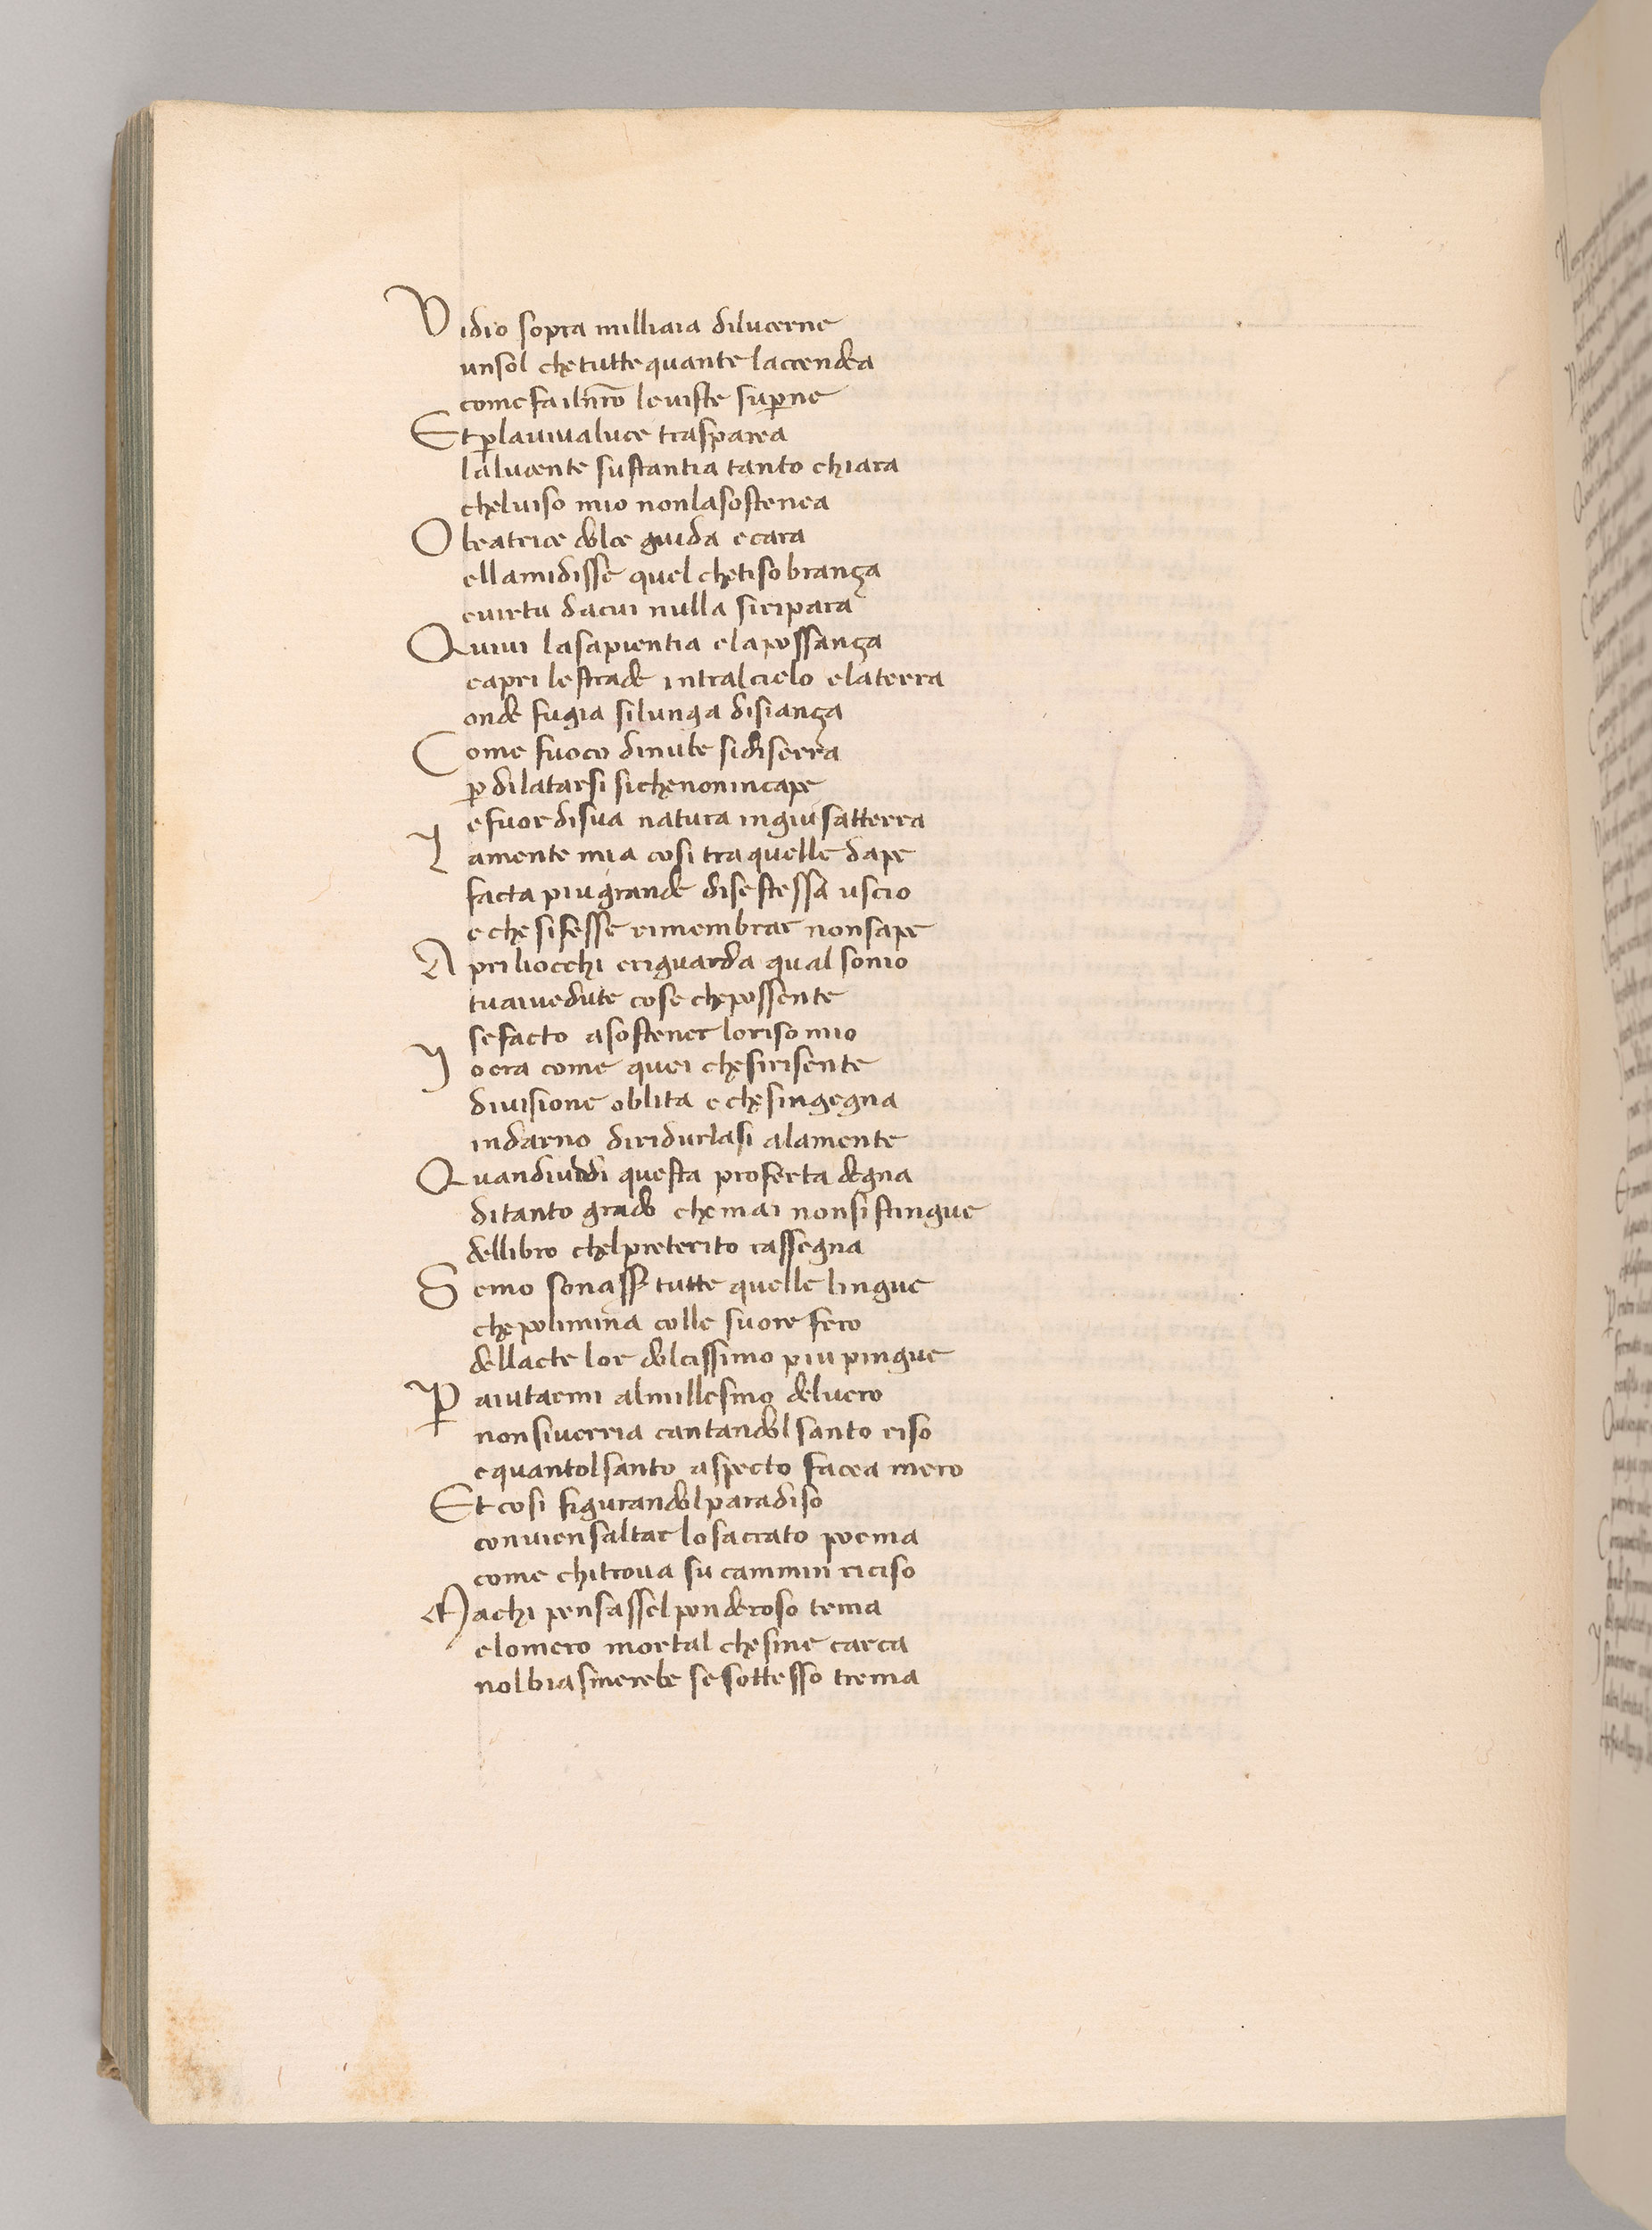 Vidio sopra milliaia dilucerne
unsol chetuttequante laccendea
comefailnr̄o leviste sup̱ne
Et p̱lavivaluce trasparea
lalucente sustantia tanto chiara
chelviso mio nonlasostenea
O beatrice dolce guida ecara
ellamidisse quel chetisobrança
evirtu dacui nulla siripara
Quivi lasapientia elapossança
capri lestrade intralcielo elaterra
onde fugia silunga disiança
Come fuoco dinube sidiserra
p̱ dilatarsi sichenonincape
efuordisua natura ingiusatterra
Lamente mia cosi traquelle dape
facta piugrande disestessa uscio
eche sifesse rimembrar nonsape
Apri liocchi eriguarda qual sonio
tuaivedute cose chepossente
sefacto asostener lorisomio
Io era come quei chesirisente
divisione oblita echesingegna
indarno diridurlasi alamente
Quandiuddi questa proferta degna
ditanto grado chemai nonsistingue
dellibro chelpreterito rassegna
Semo sonasser tutte quelle lingue
chepolimina colle suore fero
dellacte lor dolcissimo piu pingue
P̱ aiutarmi almillesmo delvero
nonsiverria cantandol santo riso
equantolsanto aspecto facea mero
Et cosi figurandolparadiso
conviensaltar losacrato poema
come chitrova su cammin riciso
Machi pensasselponderoso tema
elomero mortal chesine carca
nolbiasmerebe sesottesso trema